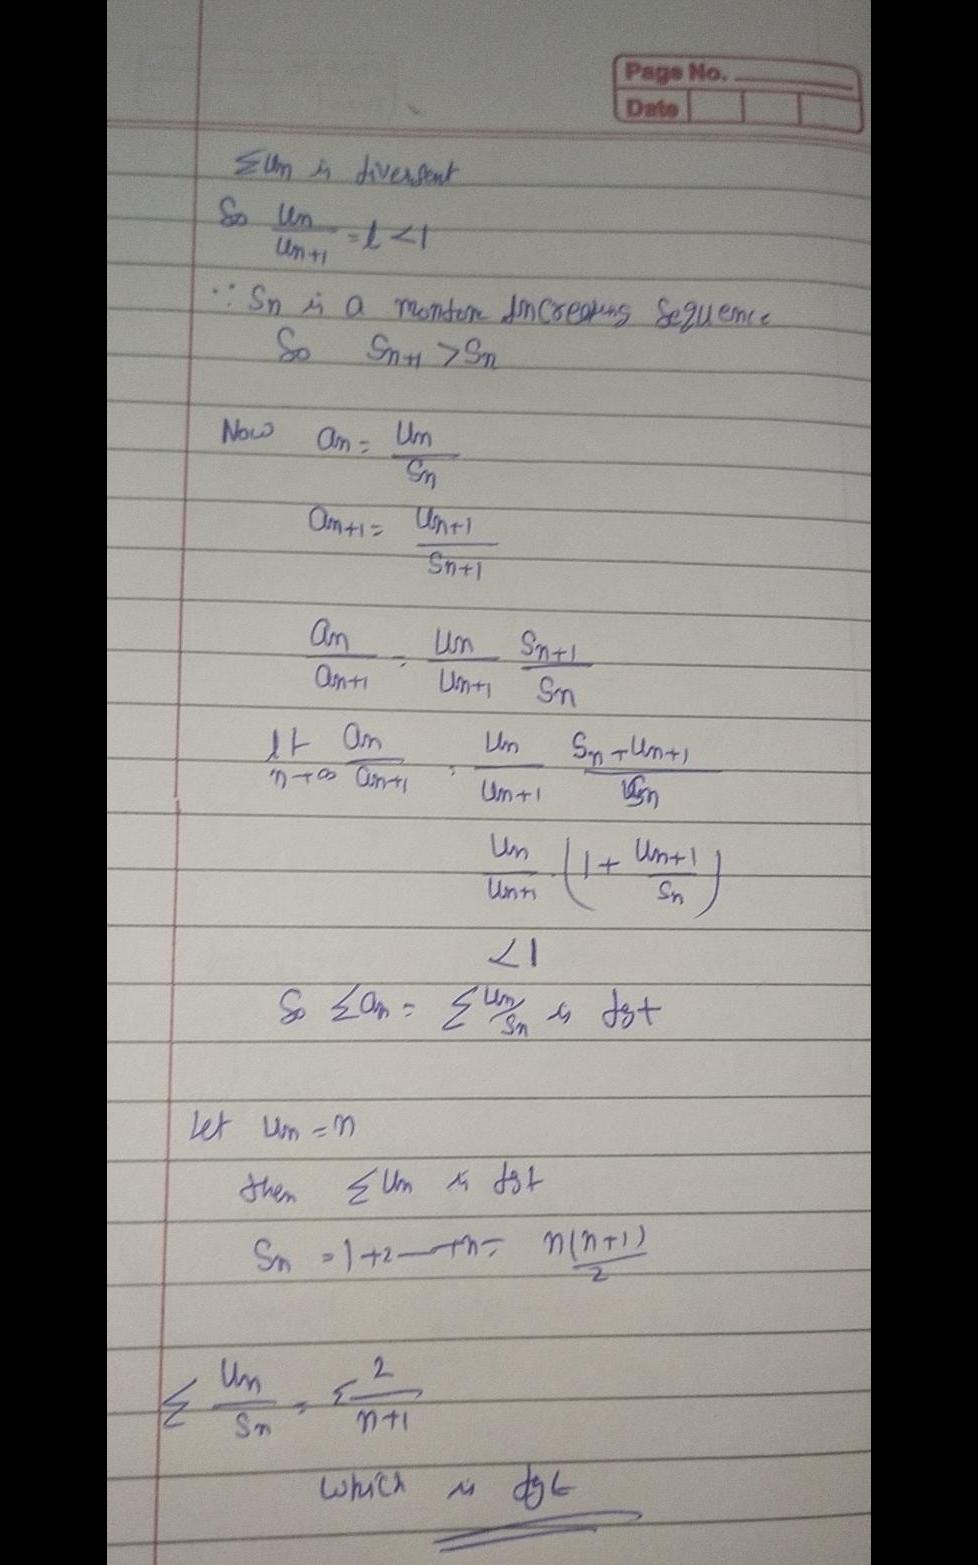 Page No.
Date
Σun is divergent
So un/un+1 = l < 1
∵ Sn is a monotone Increasing sequence
So Sn+1 > Sn
Now an = un/Sn
an+1 = un+1/Sn+1
an/an+1 = un/un+1 Sn+1/Sn
lt n→∞ an/an+1 = un/un+1 Sn+un+1/Sn
un/un+1 · (1 + un+1/Sn)
< 1
So Σan = Σ un/Sn is dgt
Let un = n
then Σun is dgt
Sn = 1+2—+n = n(n+1)/2
Σ un/Sn = Σ 2/n+1
which is dgt